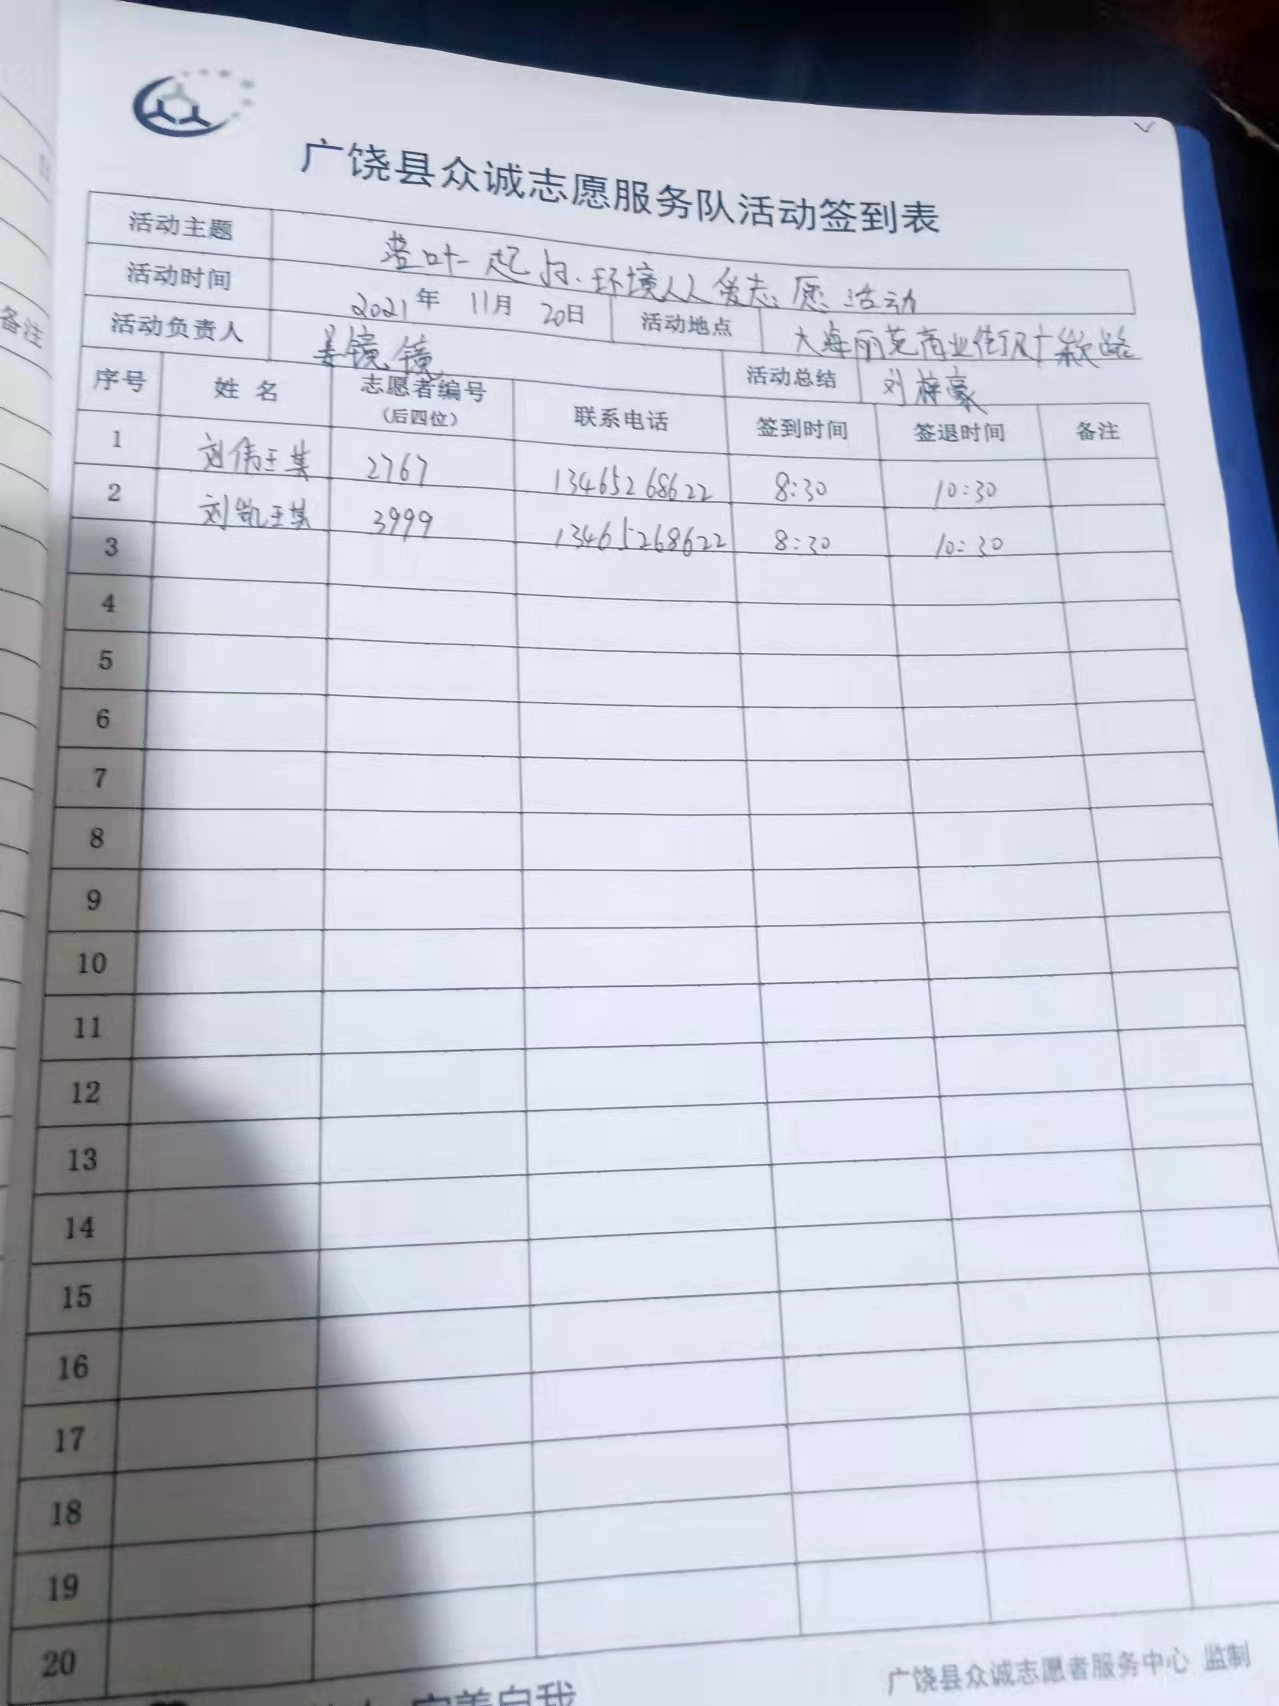 广饶县众诚志愿服务队活动签到表
活动主题 落叶一起扫.环境人人爱志愿活动
活动时间 2021年 11月 20日 活动地点 大海丽苑商业街及广 路
活动负责人 姜镜镜 活动总结 刘梓豪
序号 姓 名 志愿者编号(后四位) 联系电话 签到时间 签退时间 备注
1 刘伟 2767 13465268622 8:30 10:30
2 刘凯 3999 13465268622 8:30 10:30
3
4
5
6
7
8
9
10
11
12
13
14
15
16
17
18
19
20
广饶县众诚志愿者服务中心 监制
完善自我
备注